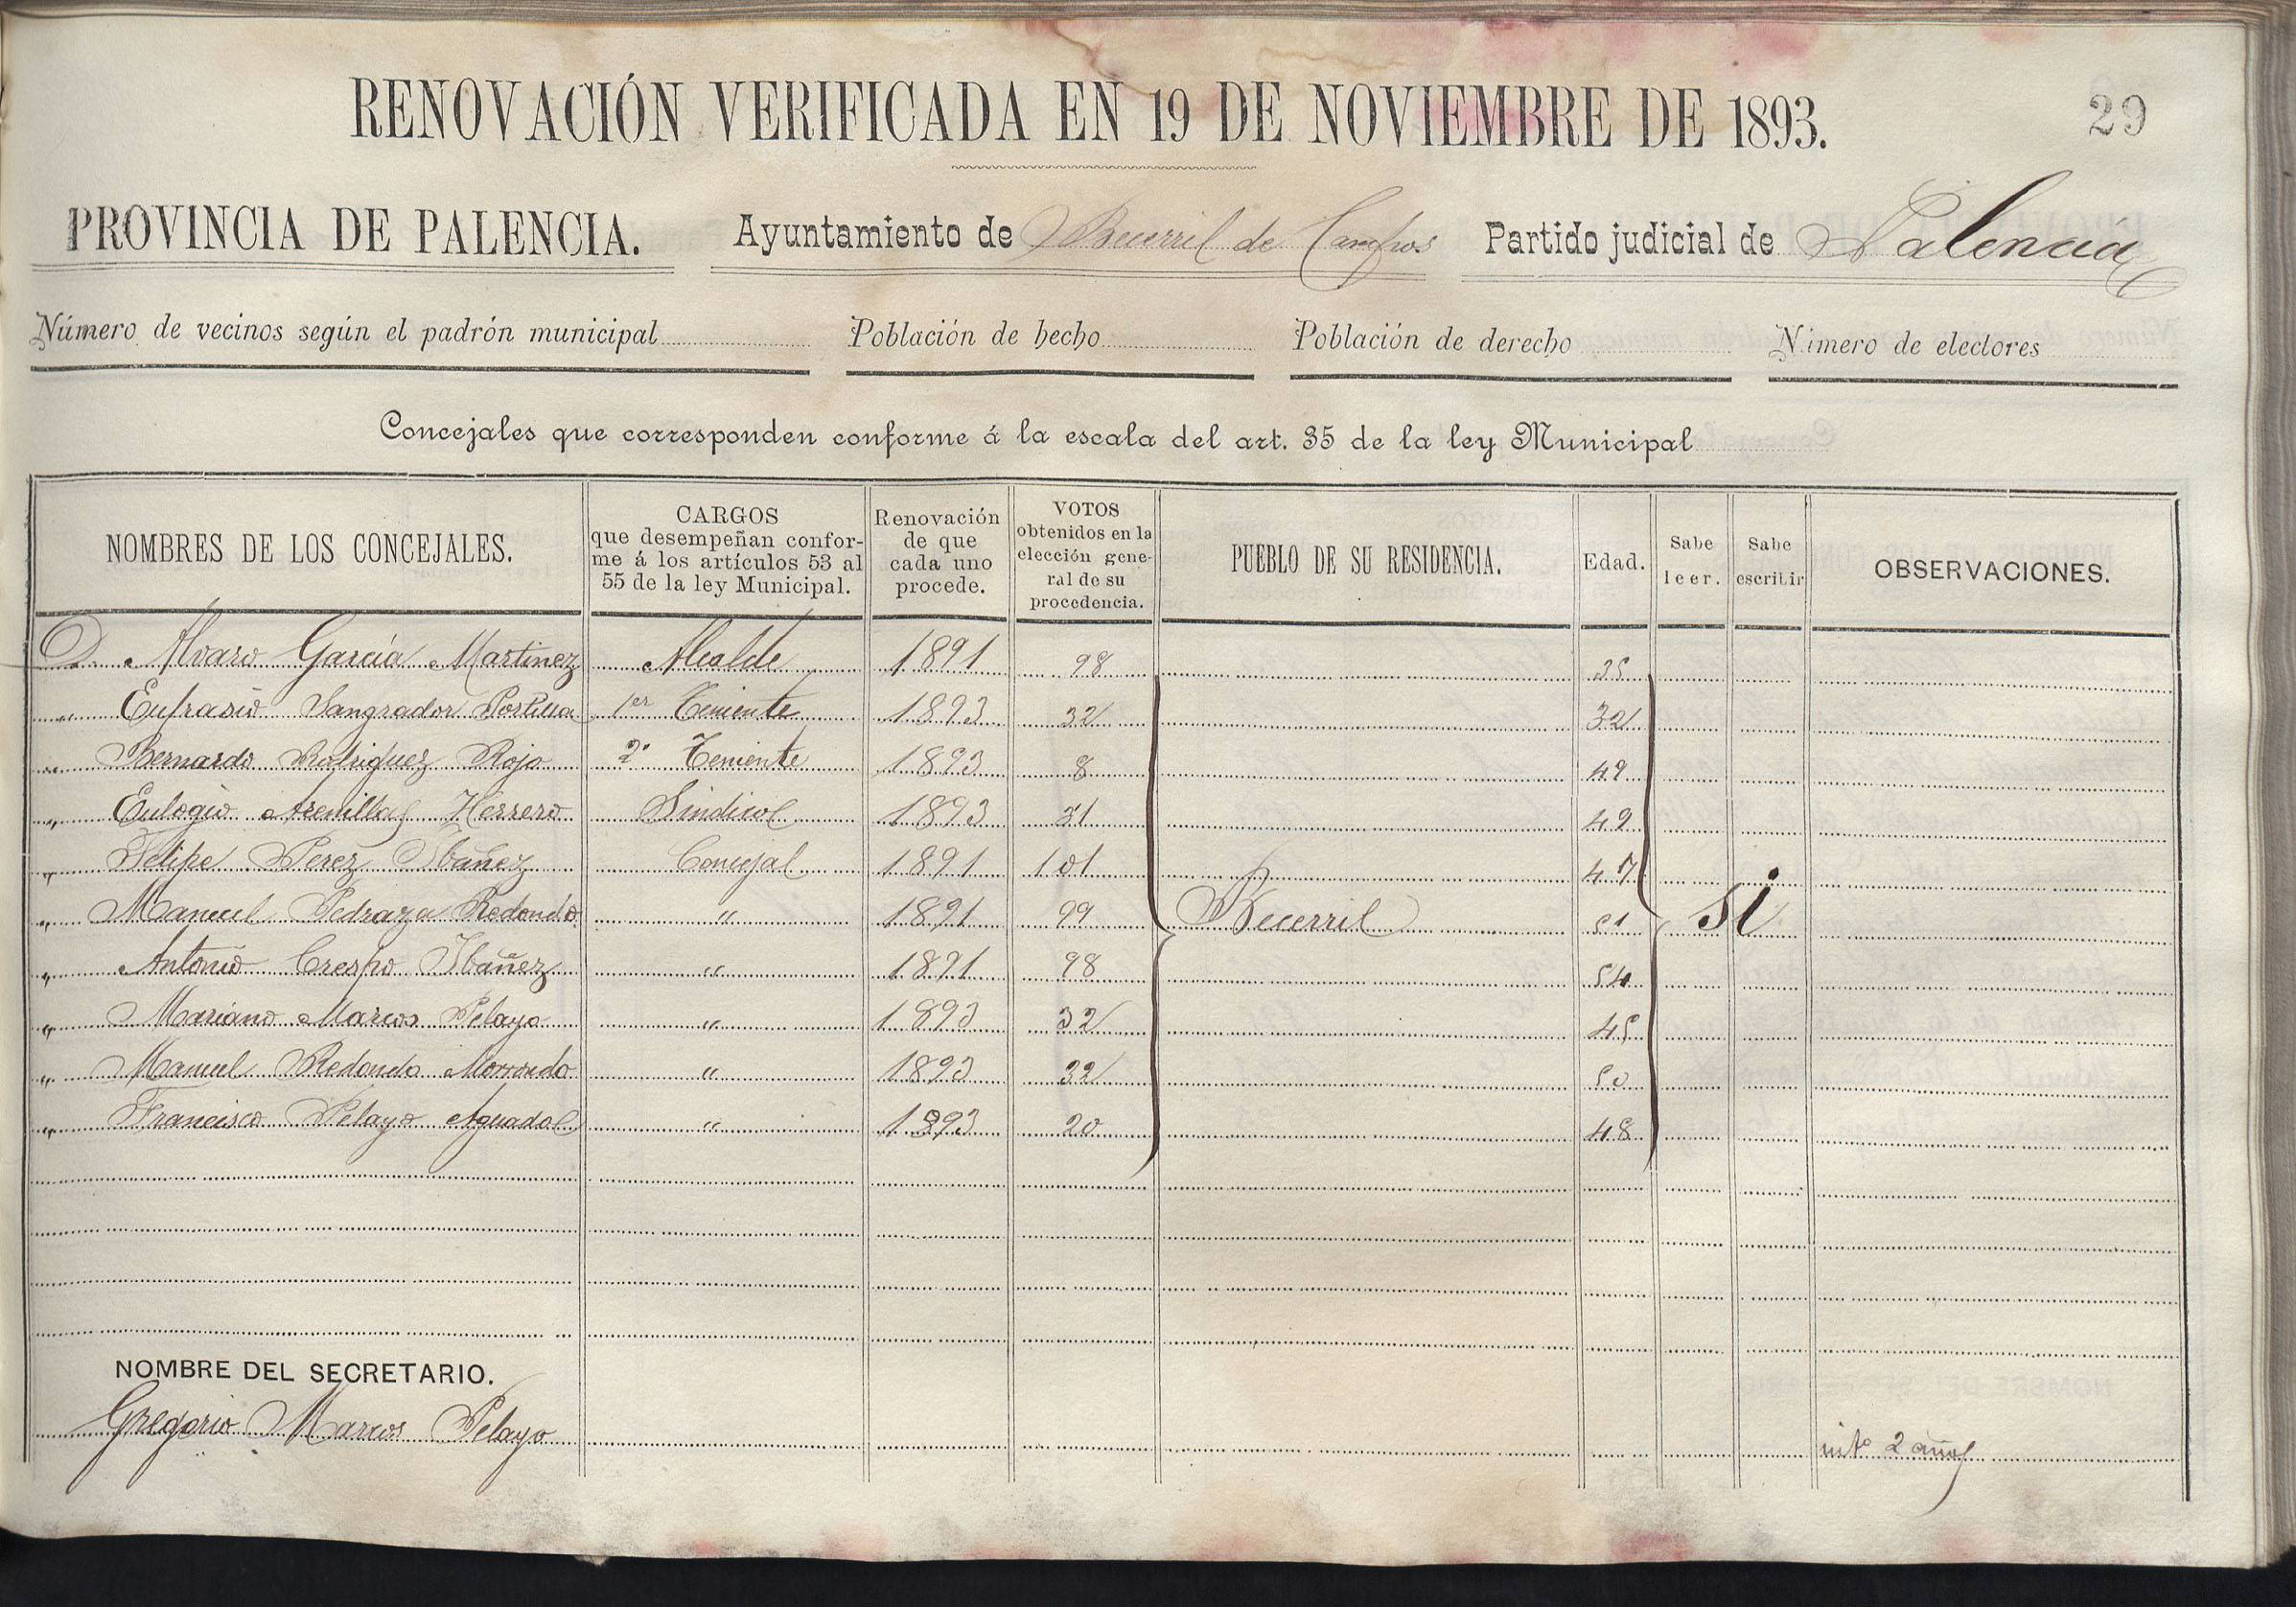 RENOVACIÓN VERIFICADA EN 19 DE NOVIEMBRE DE 1893.
29
PROVINCIA DE PALENCIA. Ayuntamiento de Becerril de Campos Partido judicial de Palencia
Número de vecinos según el padrón municipal Población de hecho Población de derecho Número de electores
Concejales que corresponden conforme á la escala del art. 35 de la ley Municipal
NOMBRES DE LOS CONCEJALES. CARGOS que desempeñan conforme á los artículos 53 al 55 de la ley Municipal. Renovación de que cada uno procede. VOTOS obtenidos en la elección general de su procedencia. PUEBLO DE SU RESIDENCIA. Edad. Sabe leer. Sabe escribir OBSERVACIONES.
D. Alvaro Garcia Martinez Alcalde 1891 98 35
" Eufrasio Sangrador Portilla 1er Teniente 1893 32 32
" Bernardo Rodriguez Rojo 2º Teniente 1893 8 49
" Eulogio Arenillas Herrero Sindico 1893 31 49
" Felipe Perez Ibañez Concejal 1891 101 47
" Manuel Pedraza Redondo " 1891 99 Becerril 51 Si
" Antonio Crespo Ibañez " 1891 98 54
" Mariano Marcos Pelayo " 1893 32 45
" Manuel Redondo Morrondo " 1893 32 50
" Francisco Pelayo Aguado " 1893 20 48
NOMBRE DEL SECRETARIO.
Gregorio Marcos Pelayo 2 años